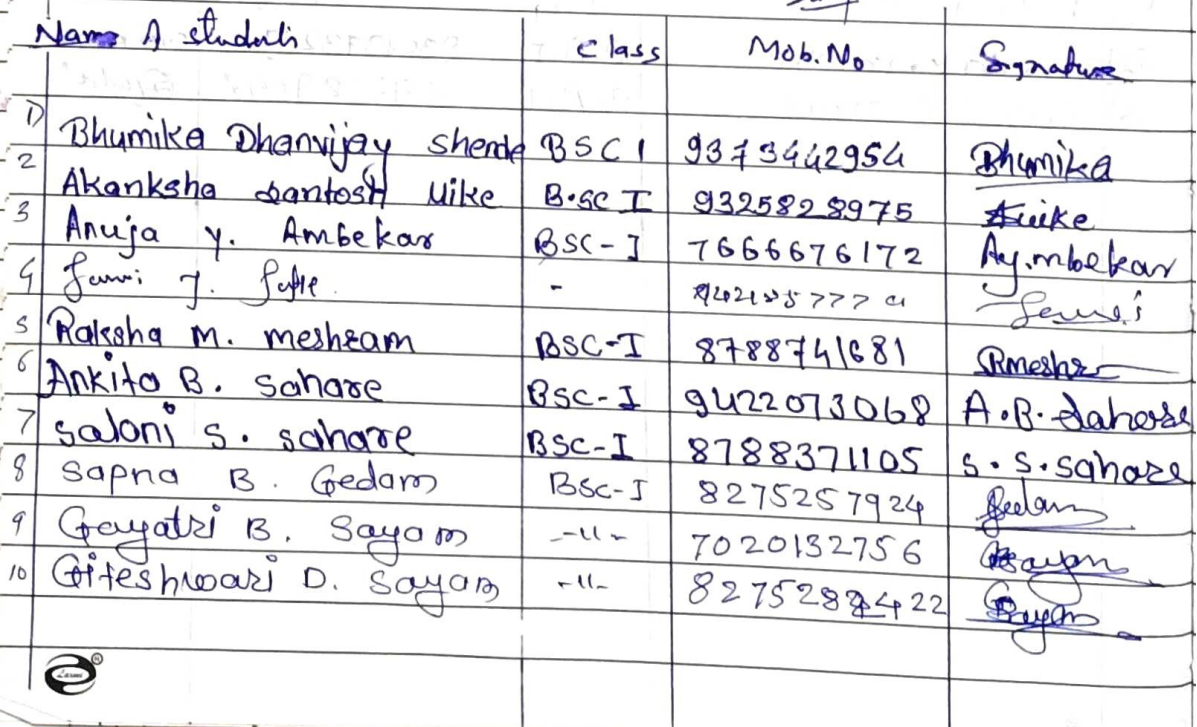 Name of students Class Mob. No Signature
1) Bhumika Dhanvijay Shende BSC I 9373442954 Bhumika
2 Akanksha Santosh Uike B.sc I 9325828975 Auike
3 Anuja Y. Ambekar BSC-I 7666676172 Ay.mbekar
4 J. -
5 Raksha M. meshram BSC-I 8788741681 Rmeshr
6 Ankita B. Sahare BSC-I 9422073068 A.B. Sahare
7 Saloni S. sahare BSC-I 8788371105 S.S. sahare
8 Sapna B. Gedam BSC-I 8275257924 Gedam
9 Gayatri B. Sayam -11- 7020132756 Sayam
10 Giteshwari D. Sayam -11- Sayam
Laxmi